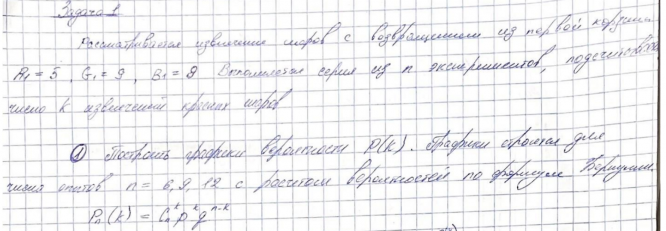 Задача 1
Рассматривается извлечение шаров с возвращением из первой корзины
R₁ = 5, G₁ = 9, B₁ = 9 Выполняется серия из n экспериментов, подсчитывается
число k извлечений красных шаров
① Построить графики вероятности P(k). Графики строятся для
числа опытов n = 6, 9, 12 с расчетом вероятностей по формуле Бернулли.
Pₙ(k) = Cₙᵏ pᵏ qⁿ⁻ᵏ